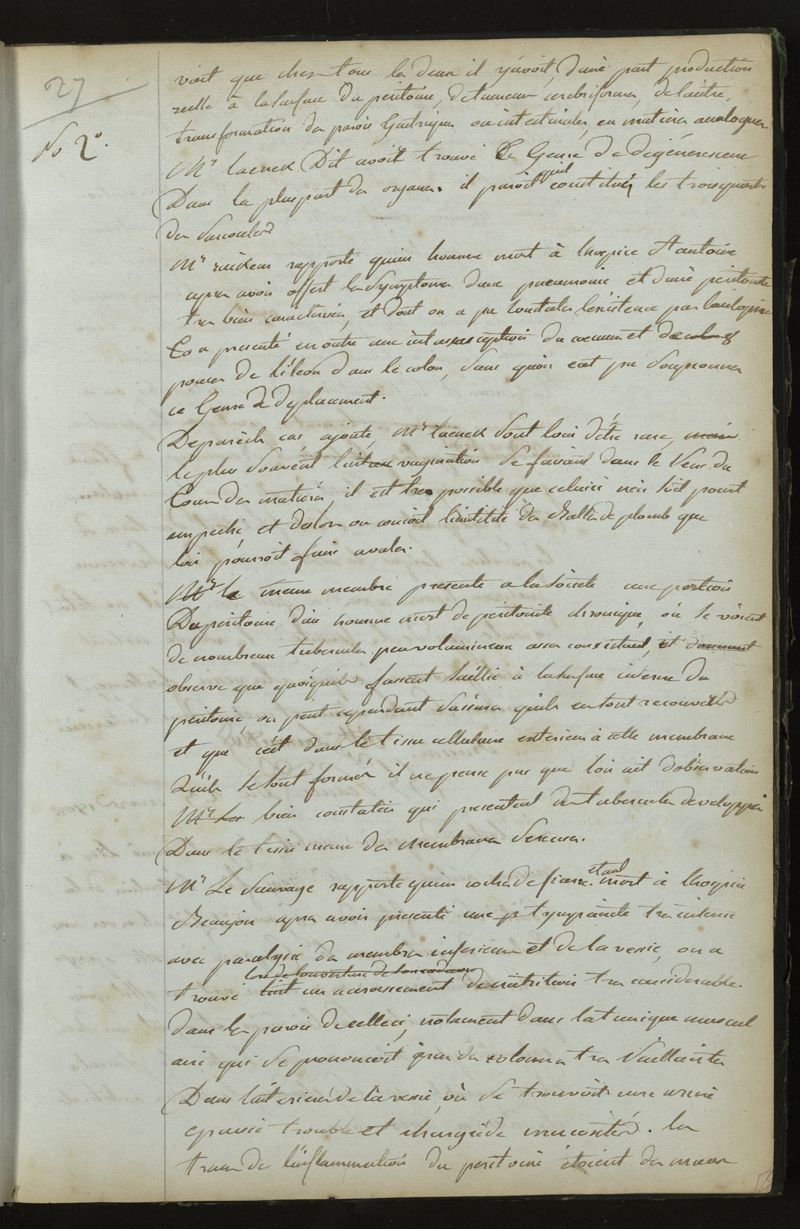 27
No 2°.
voit que chez tous les deux il y avoit, d'une part production
réelle à la surface du péritoine, de tumeurs cérébriformes, de l'autre,
transformation des parois Gastriques ou intestinales en matieres analogues
Mr laenek Dit avoir trouvé Ce Genre de dégénérescence
Dans la pluspart des organes. il paroit constituer les trois quarts
des sarcoceles
Mr rapporte qu'un homme mort à l'hospice St antoine
apres avoir offert les symptomes d'une pneumonie et d'une péritonite
tres bien caractérisées, et dont on a pu constater l'existence par l'autopsie
Co a presenté en outre une intussusception du coecum et
de l'iléon dans le colon, sans qu'on eut pu soupçonner
ce Genre de déplacement.
De pareils cas ajoute, Mr laenek sont loin d'être rares,
le plus souvent l'intus vagination se faisant dans le sens du
Cours des matieres, il est tres possible que celui-ci n'en soit point
empeché, et des lors on conçoit l'inutilité des Balles de plomb que
l'on pourroit faire avaler.
Mr le meme membre presente a la Société une portion
Du péritoine d'un homme mort de péritonite chronique, où se voient
de nombreux tubercules peu volumineux assez consistans, il
observe que quoiqu'ils fassent saillie à la surface interne du
péritoine, on peut cependant s'assurer qu'ils en sont recouverts
et que c'est dans le tissu cellulaire exterieur à cette membrane
qu'ils se sont formés il ne pense pas que l'on ait d'observations
Mr Les bien constatées qui presentent des tubercules developpés
Dans le tissu meme des membranes sereuses.
Mr Le Sauvage rapporte qu'un cocher de fiacre étant mort à l'hospice
Beaujon apres avoir presenté une tympanite tres intense
avec paralysie des membres inferieurs et de la vessie, on a
lors de l'ouverture de son cadavre
trouvé un accroissement de nutrition tres considerable.
dans les parois de celle ci, notament dans la tunique muscul
aire qui se prononcoit par des colonnes tres saillantes
Dans l'interieur de la vessie, où se trouvoit une urine
epaisse trouble et chargée de mucosités. les
traces de l'inflammation du peritoine étoient des mieux